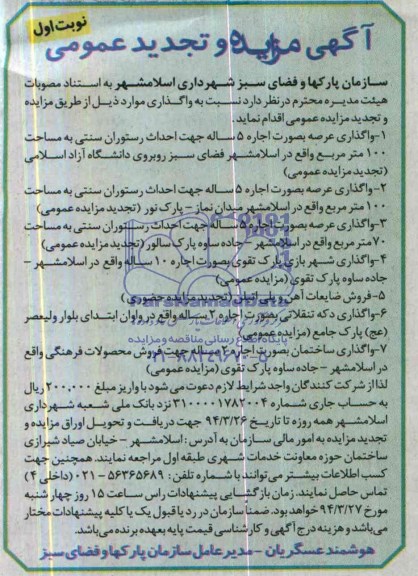 نوبت اول
آگهی مزایده و تجدید عمومی
سازمان پارکها و فضای سبز شهرداری اسلامشهر به استناد مصوبات
هیئت مدیره محترم در نظر دارد نسبت به واگذاری موارد ذیل از طریق مزایده
و تجدید مزایده عمومی اقدام نماید.
۱-واگذاری عرصه بصورت اجاره ۵ ساله جهت احداث رستوران سنتی به مساحت
۱۰۰ متر مربع واقع در اسلامشهر فضای سبز روبروی دانشگاه آزاد اسلامی
(تجدید مزایده عمومی)
۲-واگذاری عرصه بصورت اجاره ۵ ساله جهت احداث رستوران سنتی به مساحت
۱۰۰ متر مربع واقع در اسلامشهر میدان نماز - پارک نور (تجدید مزایده عمومی)
۳-واگذاری عرصه بصورت اجاره ۵ ساله جهت احداث رستوران سنتی به مساحت
۷۰ متر مربع واقع در اسلامشهر - جاده ساوه پارک سالور (تجدید مزایده عمومی)
۴-واگذاری شهر بازی پارک تقوی بصورت اجاره ۱۰ ساله واقع در اسلامشهر -
جاده ساوه پارک تقوی (مزایده عمومی)
۵-فروش ضایعات آهن و پلی اتیلن (تجدید مزایده حضوری)
۶-واگذاری دکه تنقلاتی بصورت اجاره ۲ ساله واقع در واوان ابتدای بلوار ولیعصر
(عج) پارک جامع (مزایده عمومی)
۷-واگذاری ساختمان بصورت اجاره ۲ ساله جهت فروش محصولات فرهنگی واقع
در اسلامشهر - جاده ساوه پارک تقوی (مزایده عمومی)
لذا از شرکت کنندگان واجد شرایط لازم دعوت می شود با واریز مبلغ ۲۰۰,۰۰۰ ریال
به حساب جاری شماره ۳۱۰۰۰۰۱۷۸۲۰۰۴ نزد بانک ملی شعبه شهرداری
اسلامشهر همه روزه تا تاریخ ۹۴/۳/۲۶ جهت دریافت و تحویل اوراق مزایده و
تجدید مزایده به امور مالی سازمان به آدرس: اسلامشهر - خیابان صیاد شیرازی
ساختمان حوزه معاونت خدمات شهری طبقه اول مراجعه نمایند. همچنین جهت
کسب اطلاعات بیشتر می توانند با شماره تلفن: ۵۶۳۶۵۶۸۹-۰۲۱ (داخلی ۴)
تماس حاصل نمایند. زمان بازگشایی پیشنهادات راس ساعت ۱۵ روز چهارشنبه
مورخ ۹۴/۳/۲۷ خواهد بود. ضمنا سازمان در رد یا قبول یک یا کلیه پیشنهادات مختار
می باشد و هزینه درج آگهی و کارشناسی قیمت پایه بعهده برنده می باشد.
هوشمند عسگریان - مدیرعامل سازمان پارکها و فضای سبز